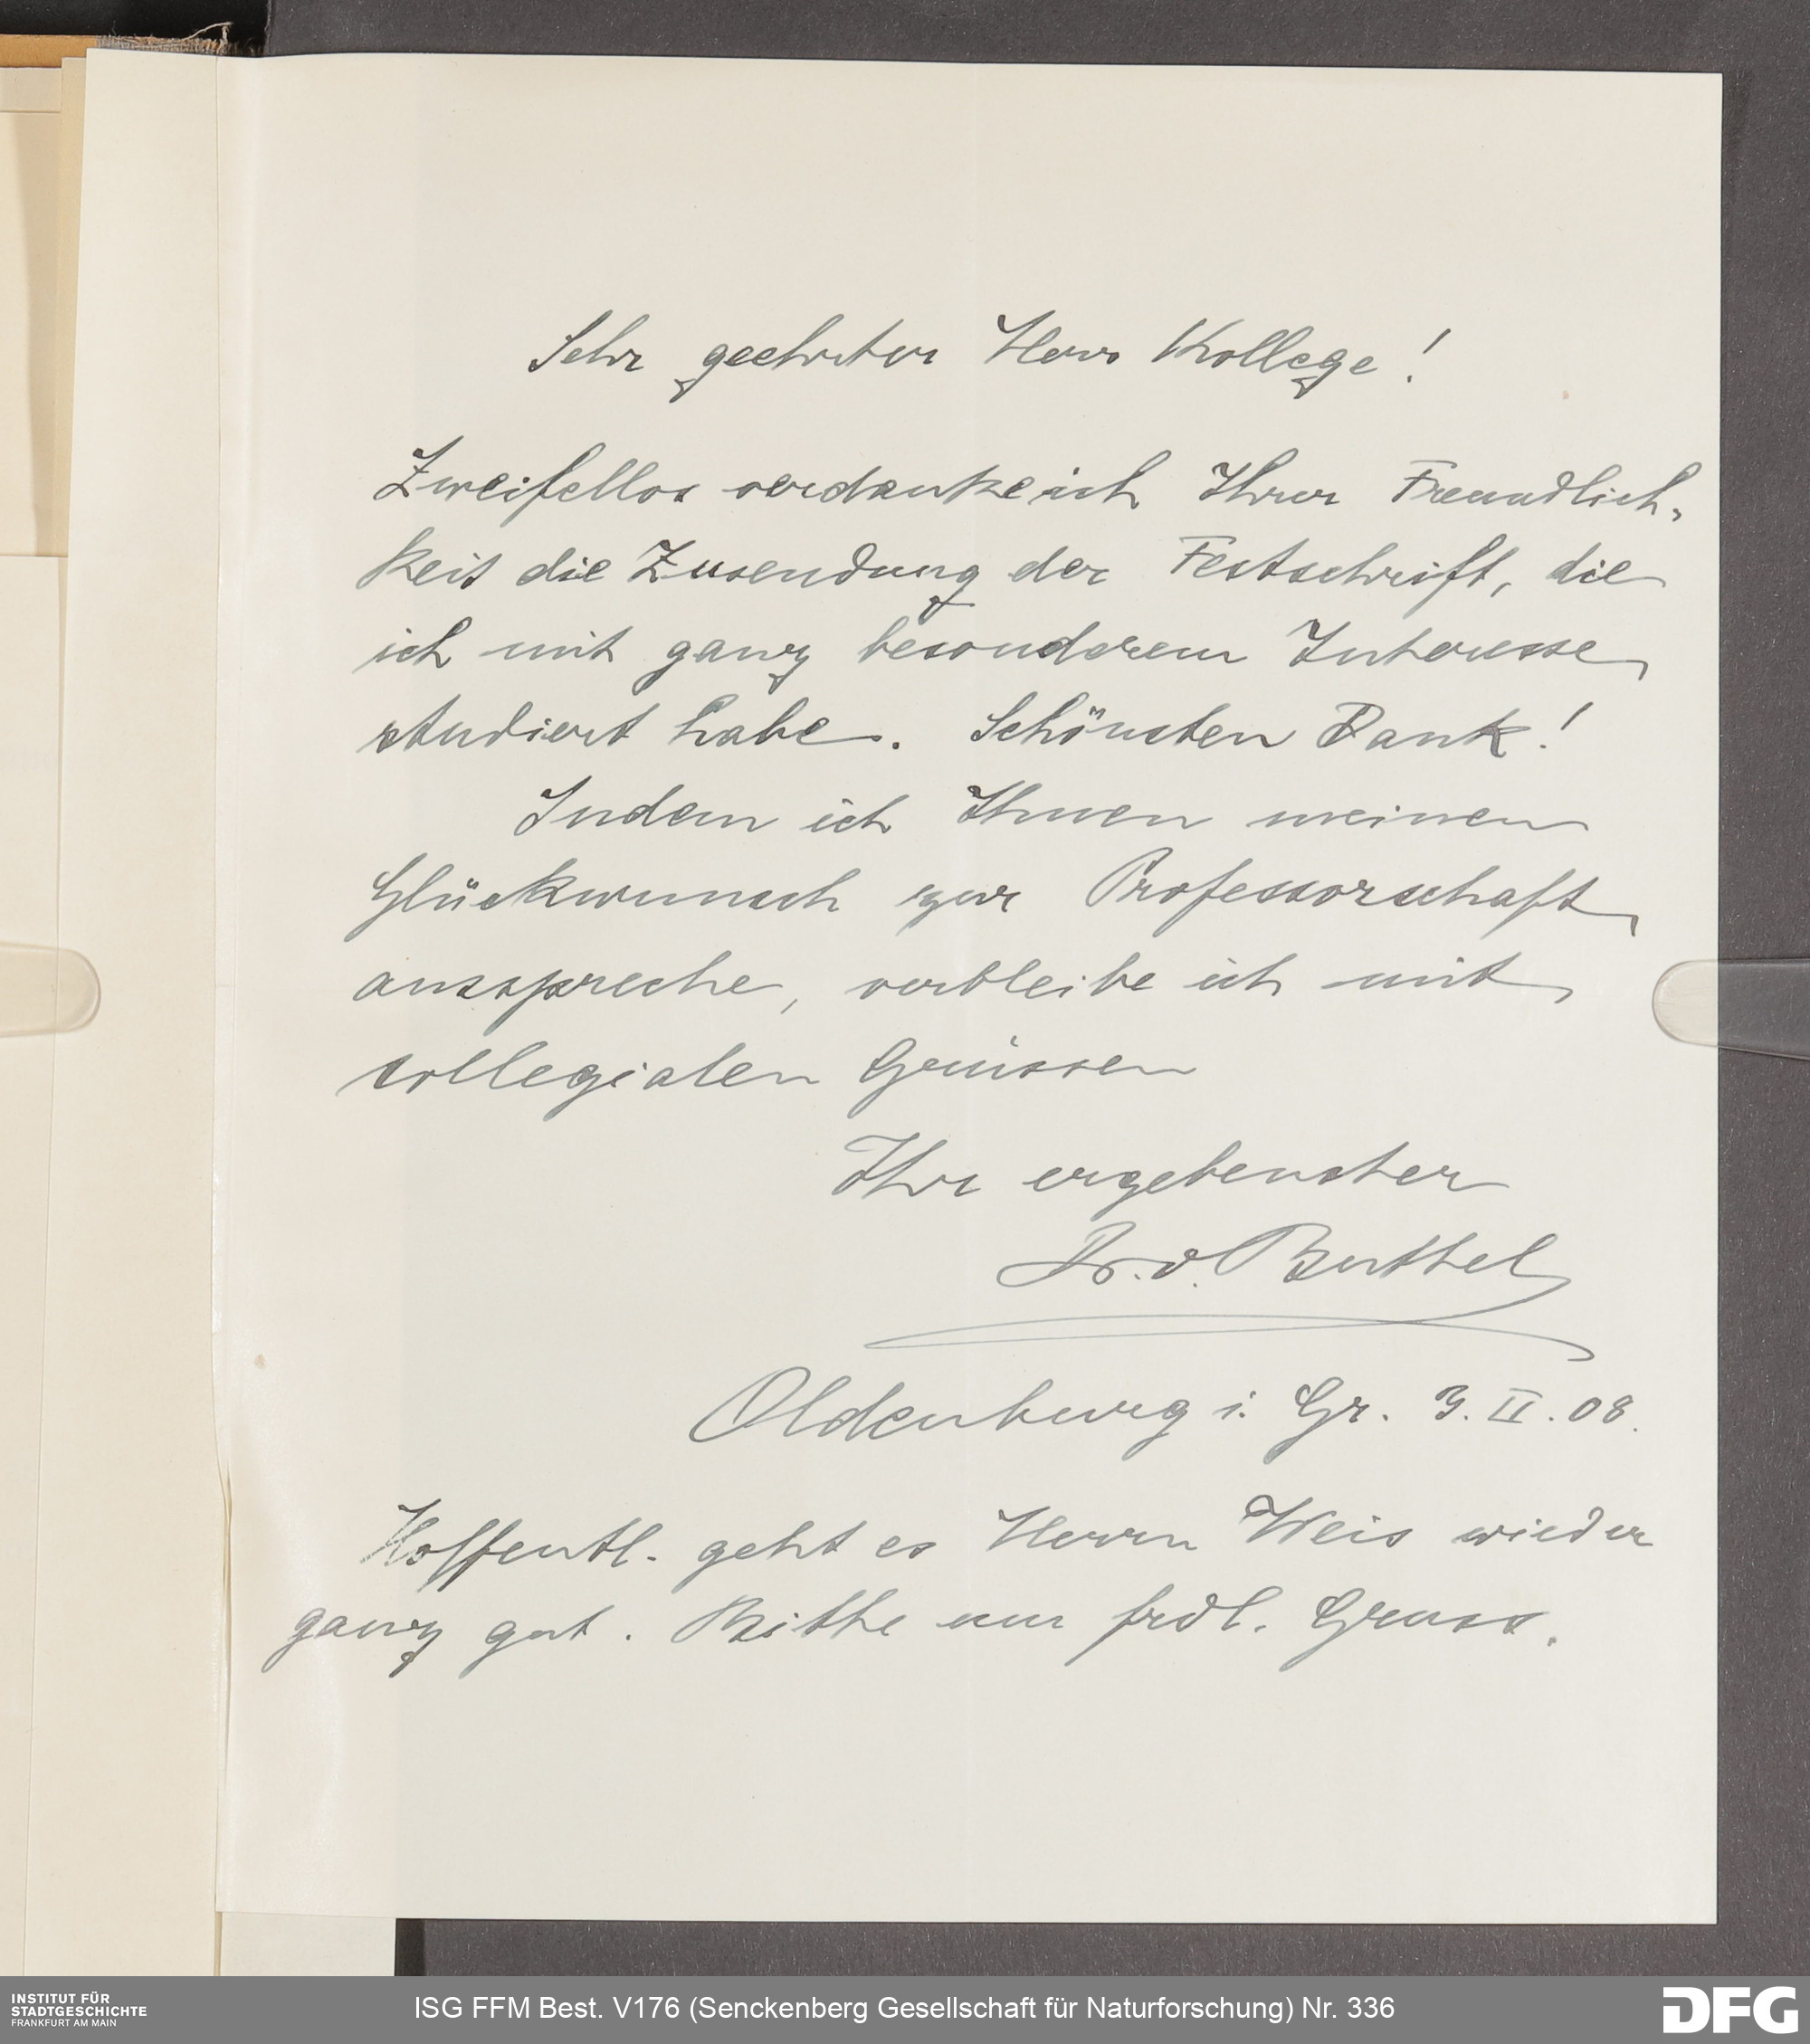 Sehr geehrter Herr Kollege!
Zweifellos verdanke ich Ihrer Freundlich-
keit die Zusendung der Festschrift, die
ich mit ganz besonderem Interesse
studiert habe. Schönsten Dank!
Indem ich Ihnen meinen
Glückwunsch zur Professorschaft
ausspreche, verbleibe ich mit
collegialen Grüssen
Ihr ergebenster
Dr. v. Buttel
Oldenburg i. Gr. 3. II. 08.
Hoffentl. geht es Herrn Weis wieder
ganz gut. Bitte um frdl. Gruss.
INSTITUT FÜR
STADTGESCHICHTE
FRANKFURT AM MAIN
ISG FFM Best. V176 (Senckenberg Gesellschaft für Naturforschung) Nr. 336
DFG